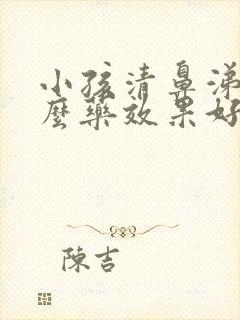 小孩清鼻涕
麼藥效果好
陳吉